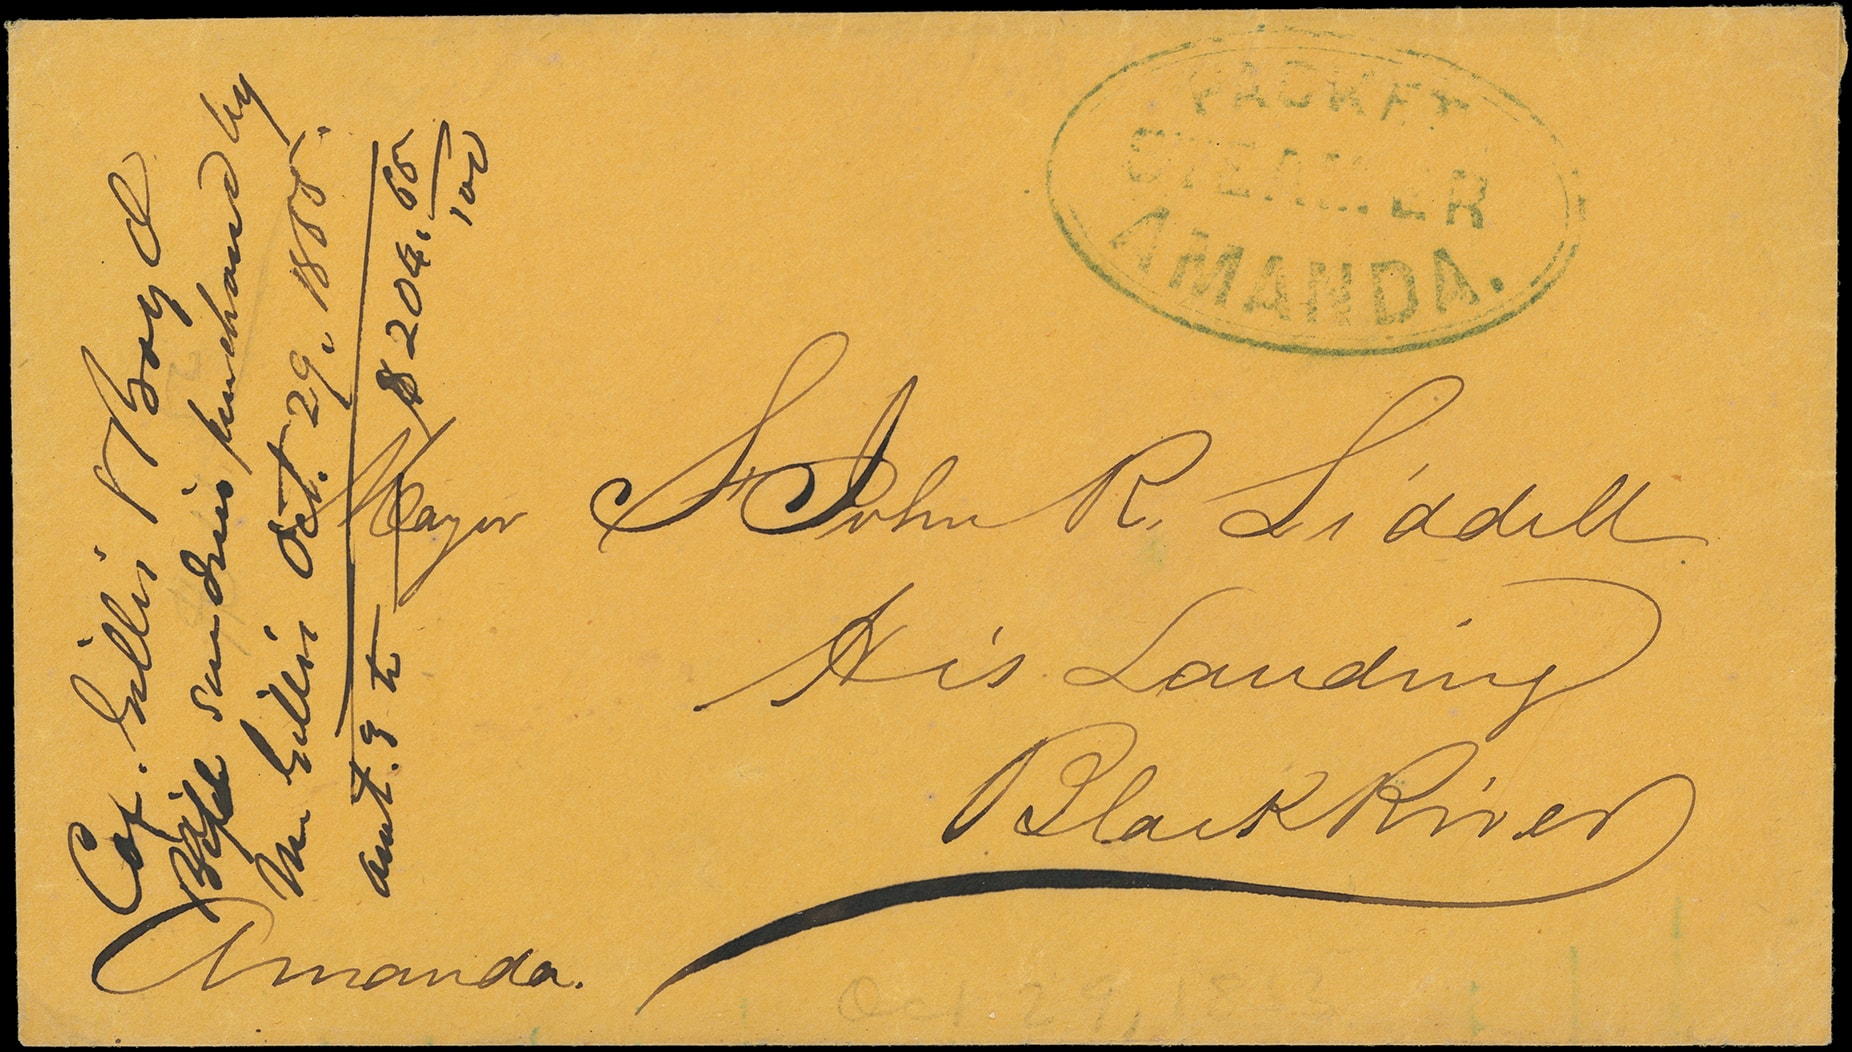 PACKET
STEAMER
AMANDA.
Mayor St John R. Liddell
His Landing
Black River
Amanda.
Gillis & Boyd
sundries purchased by
Mr Gillis Oct. 29, 1855.
amt. $204. 65/100
Oct 29, 1855